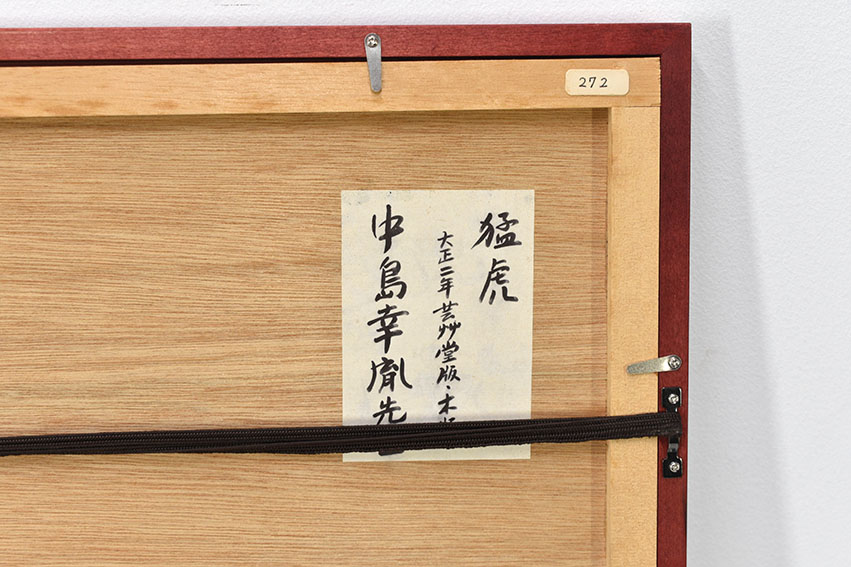 272
猛虎
大正二年芸艸堂版・木版
中島幸胤先